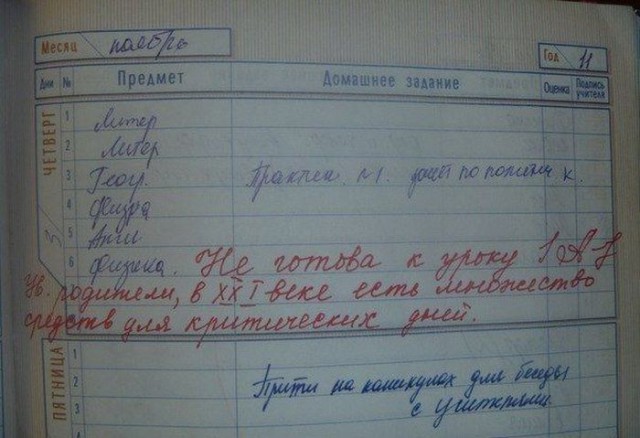 Месяц ноябрь Год 11
Дни № Предмет Домашнее задание Оценка Подпись учителя
ЧЕТВЕРГ 3
1 Литер
2 Литер
3 Геогр. Практич. №1.
4 Физра
5 Англ
6 Физика. Не готова к уроку
Ув. родители, в XXI веке есть множество
средств для критических дней.
ПЯТНИЦА
1
2 Прийти на каникулах для беседы
3 с учителями.
4